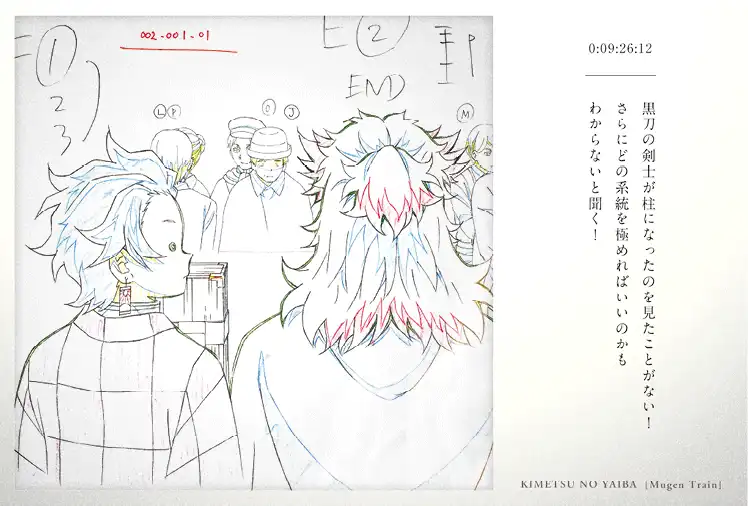 002-001-01
1
2
3
2
END
L P
O J
M
0:09:26:12
黒刀の剣士が柱になったのを見たことがない！
さらにどの系統を極めればいいのかも
わからないと聞く！
KIMETSU NO YAIBA [Mugen Train]